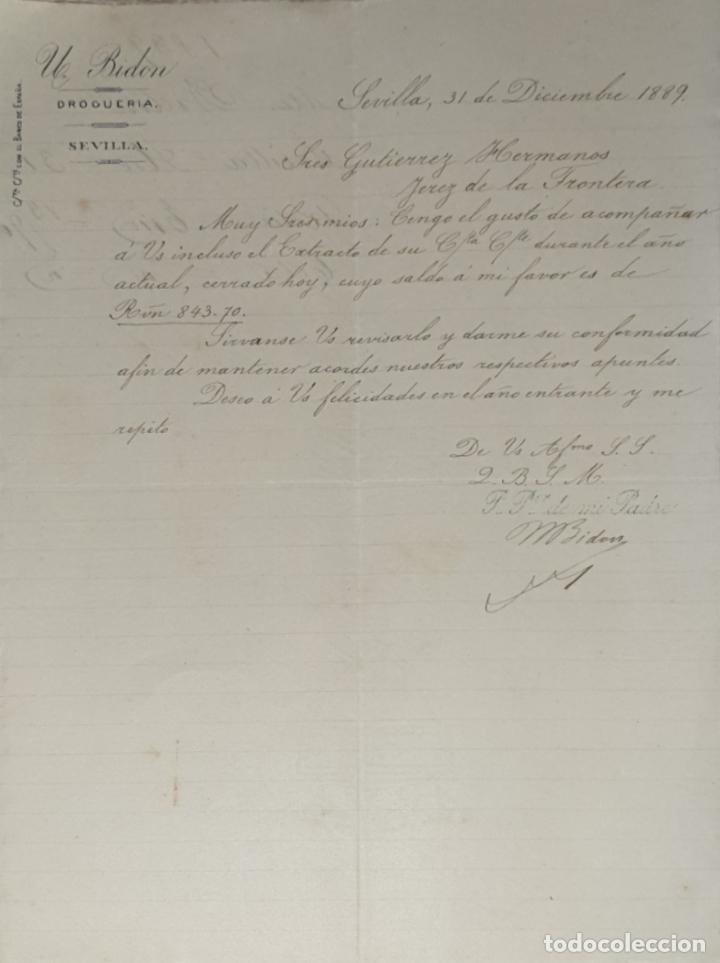 U. Bidon
DROGUERIA.
SEVILLA.
C/te C/te CON EL BANCO DE ESPAÑA.
Sevilla, 31 de Diciembre 1889.
Sres Gutierrez Hermanos
Jerez de la Frontera
Muy Sres mios: Tengo el gusto de acompañar
á Vs incluso el Extracto de su C/ta C/te durante el año
actual, cerrado hoy, cuyo saldo á mi favor es de
Rvn 843.70.
Sirvanse Vs revisarlo y darme su conformidad
afin de mantener acordes nuestros respectivos apuntes.
Deseo á Vs felicidades en el año entrante y me
repito
De Vs Afmo S. S.
Q. B. S. M.
P. Pr de mi Padre
MBidon
todocoleccion
todocoleccion.net